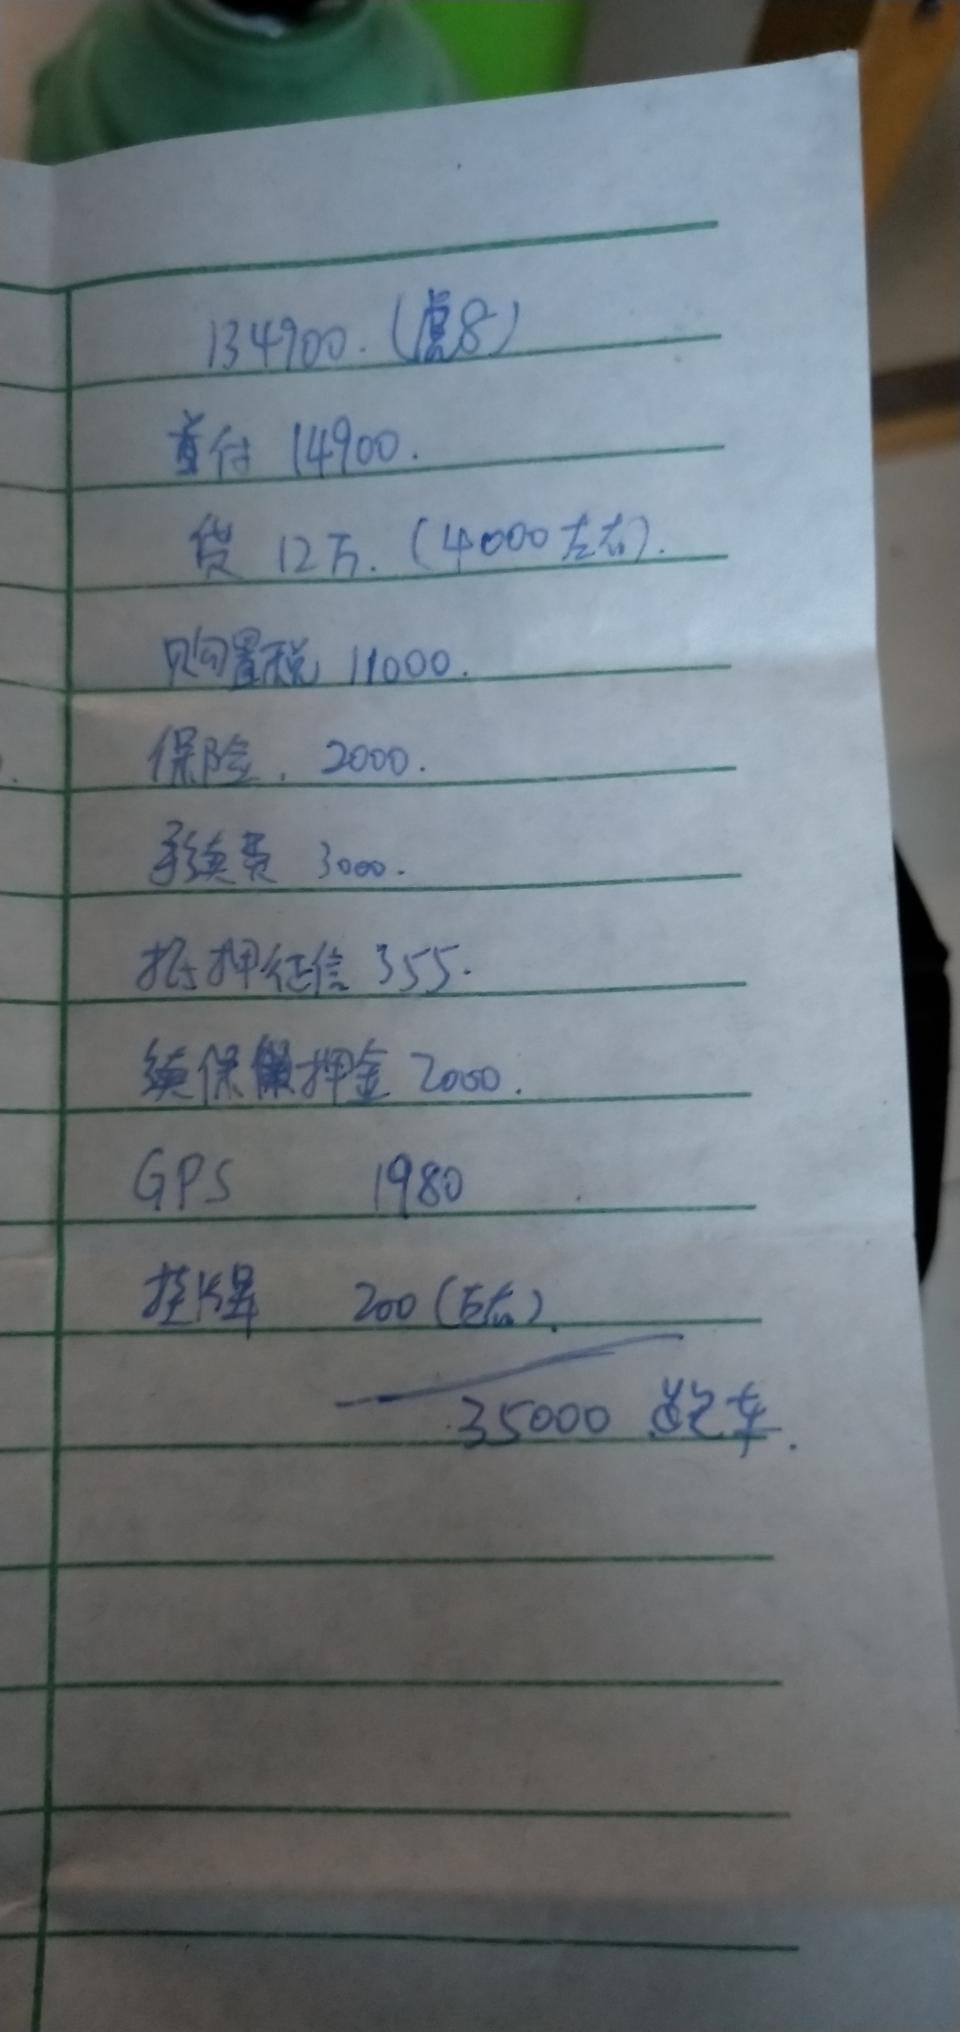 134900.(虎8)
首付 14900.
贷 12万.(4000左右).
购置税 11000.
保险. 2000.
手续费 3000.
抵押征信 355.
续保押金 2000.
GPS 1980
挂牌 200(左右).
35000 车.